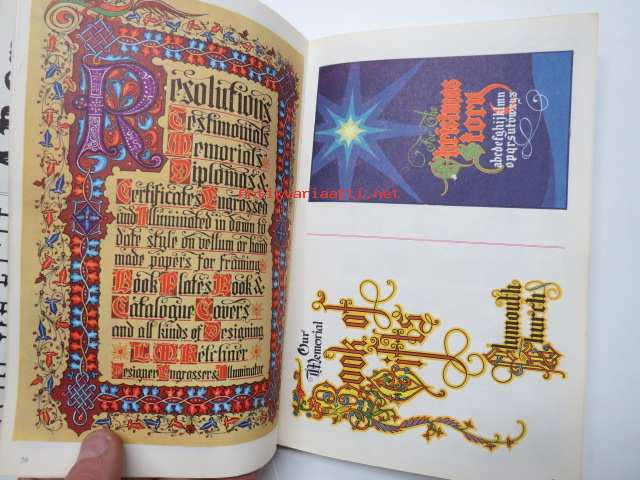 Resolutions
Testimonials
Memorials
Diplomas &
Certificates Engrossed
and Illuminated in down to
date style on vellum or hand
made papers for framing
Book Plates Book &
Catalogue Covers
and all kinds of Designing
Designer Engrosser & Illuminator
The
Christmas
Story
abcdefghijklmn
opqrstuvwxyz
Our
Memorial
Book of
Gifts
Plymouth
Church